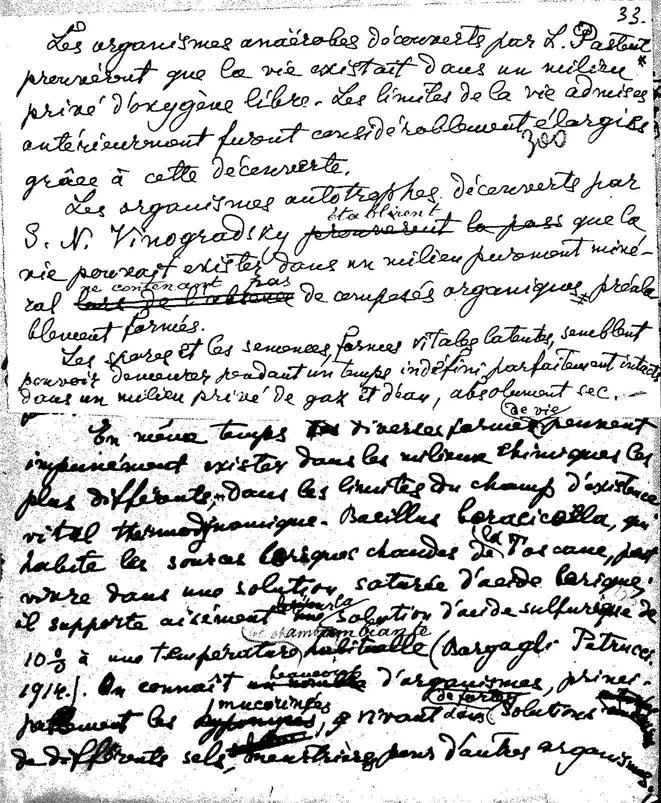 33.
Les organismes anaérobes découverts par L. Pasteur
prouvèrent que la vie existait dans un milieu *
privé d'oxygène libre. Les limites de la vie admises
antérieurement furent considérablement élargies
300
grâce à cette découverte.
Les organismes autotrophes, découverts par
établirent
S. N. Vinogradsky prouvèrent la pass que la
vie pouvait exister dans un milieu purement miné-
ne contenant pas
ral lors de l'absence de composés organiques, préala
blement formés.
Les spores et les semences, formes vitales latentes, semblent
pouvoir demeurer pendant un temps indéfini parfaitement intacts
dans un milieu privé de gaz et d'eau, absolument sec. –
de vie
En même temps diverses formes peuvent
impunément exister dans les milieux chimiques les
plus différents, dans les limites du champ d'existence
vital thermodynamique. Bacillus boracicola, qui
habite les sources boriques chaudes de la Toscane, peut
vivre dans une solution saturée d'acide borique;
il supporte aisément une solution d'acide sulfurique de
ambiante
10 % à une température habituelle (Bargagli Petrucci
1914). On connaît beaucoup d'organismes, princi-
mucorinées de fortes
palement les vivant dans solutions
de différents sels, meurtriers pour d'autres organismes.